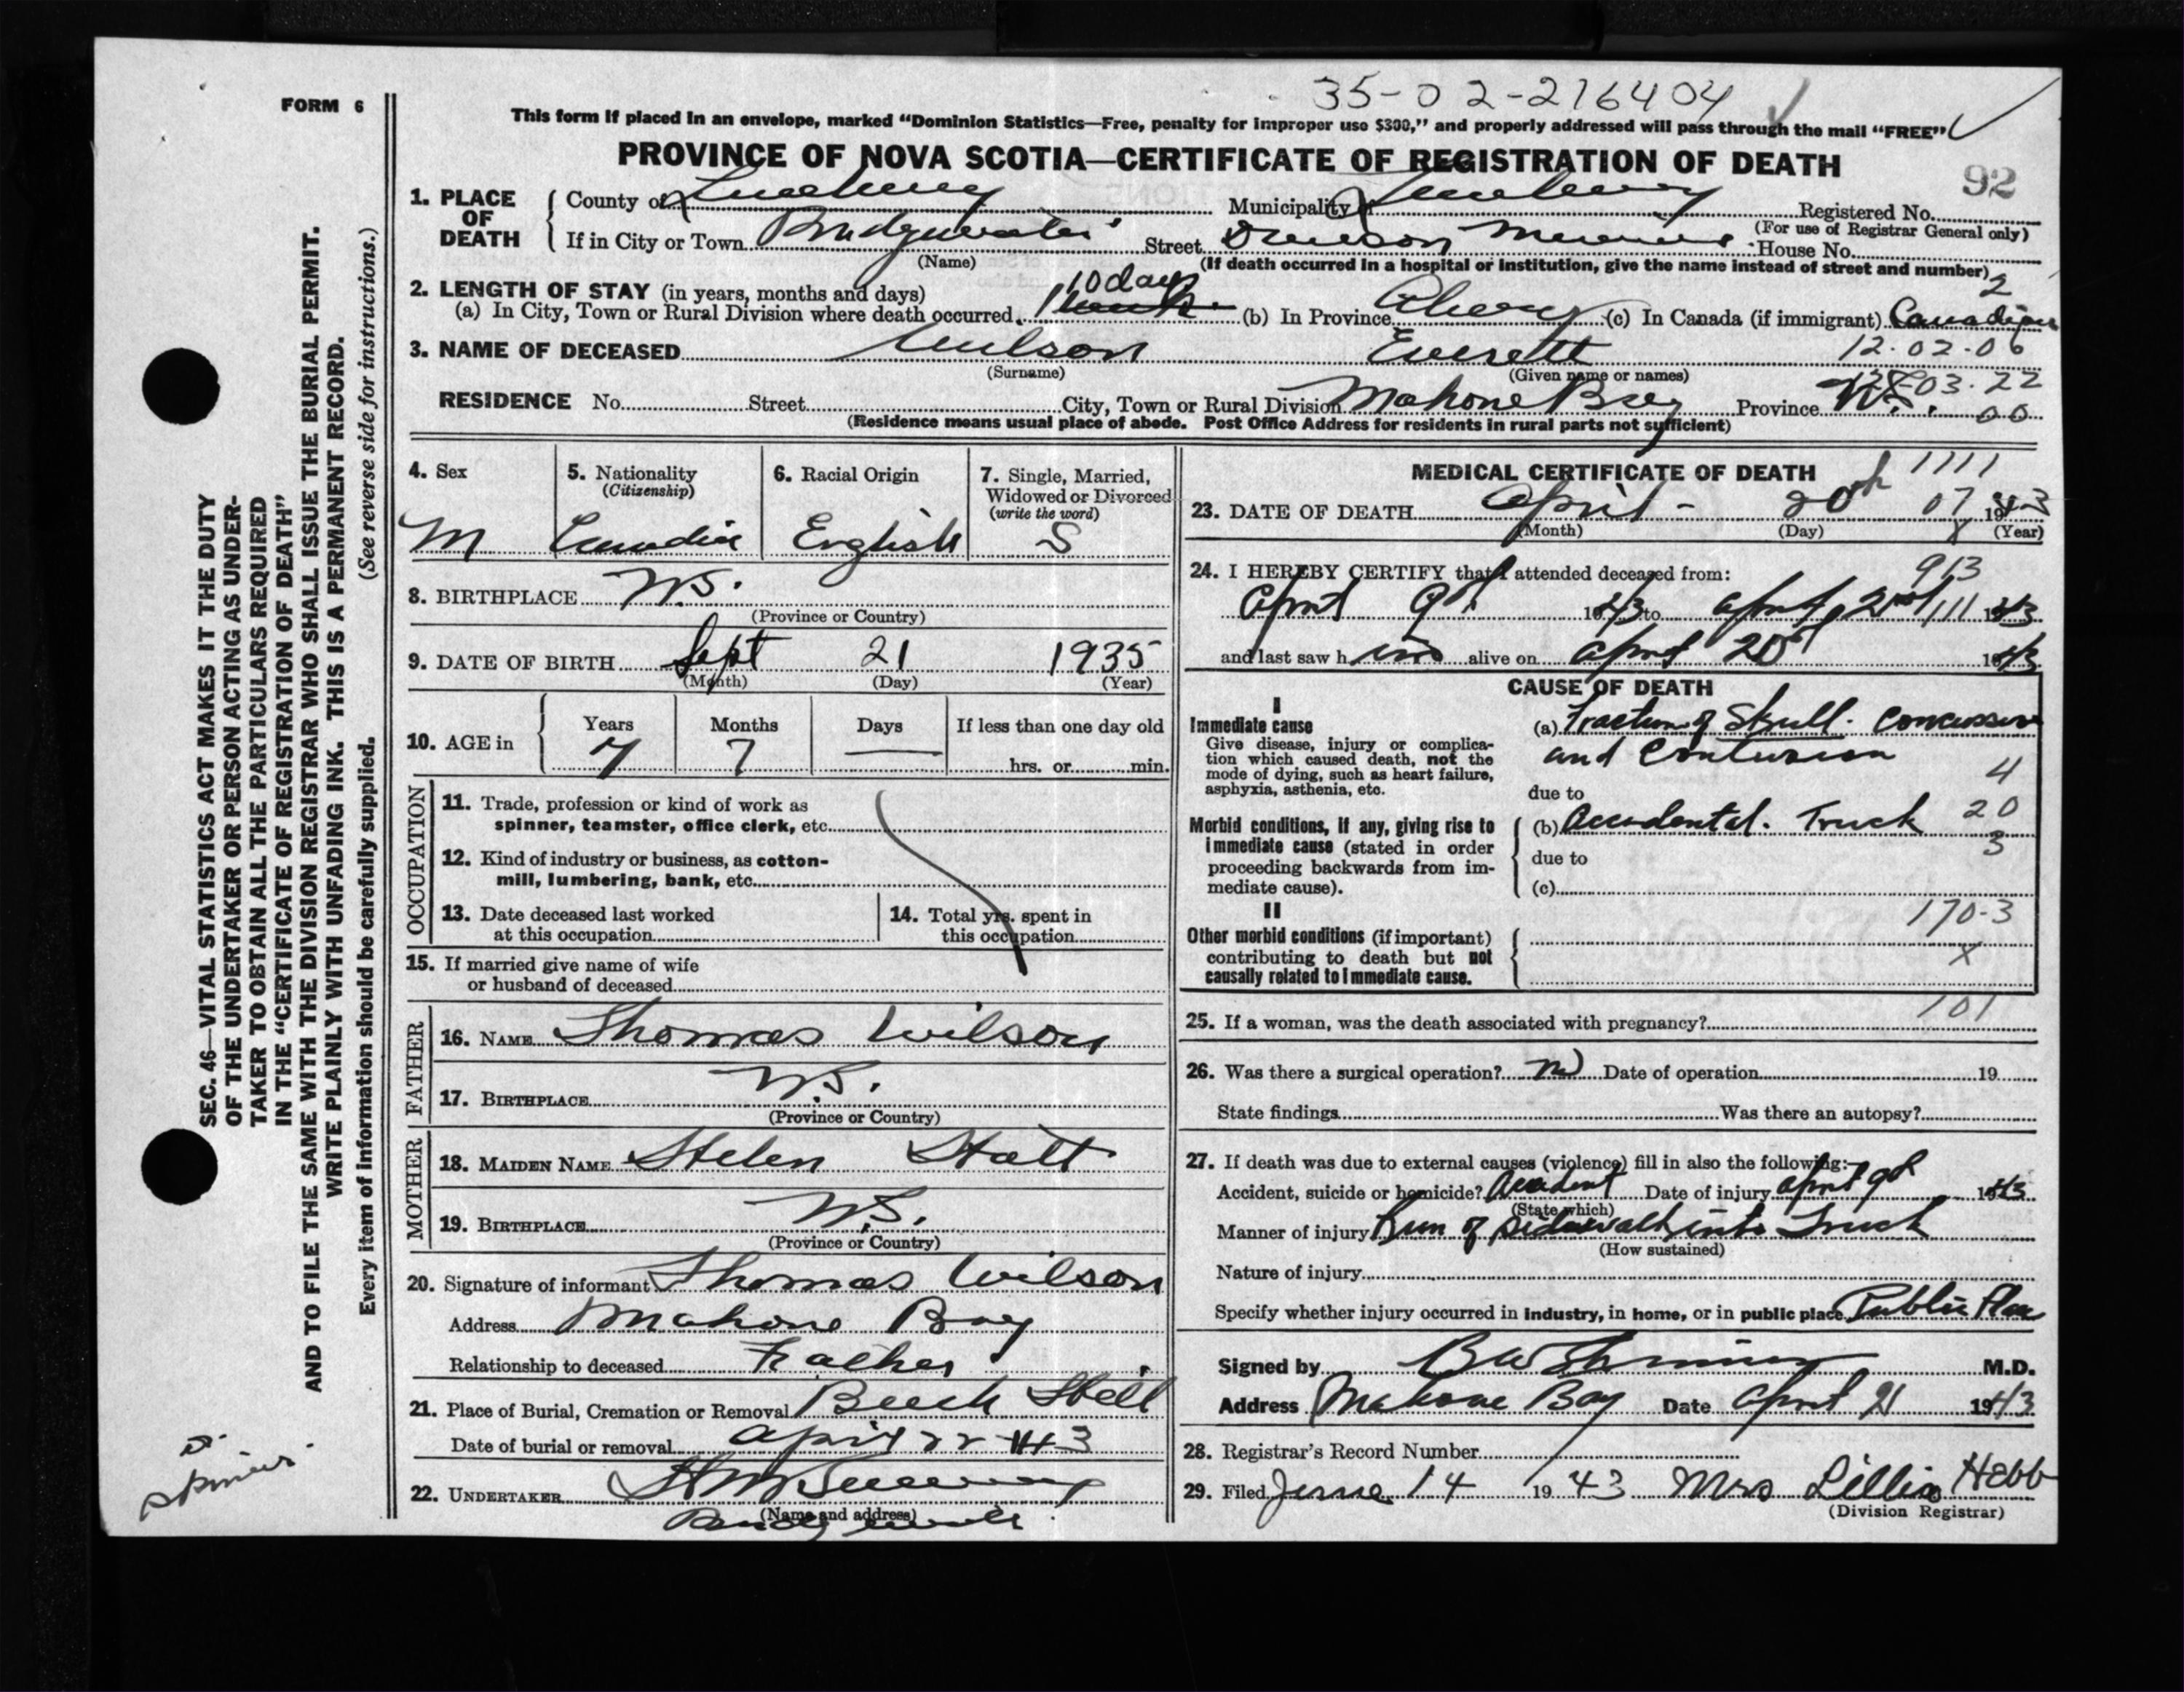 35-02-216404
FORM 6
This form if placed in an envelope, marked “Dominion Statistics—Free, penalty for improper use $300,” and properly addressed will pass through the mail “FREE”
PROVINCE OF NOVA SCOTIA—CERTIFICATE OF REGISTRATION OF DEATH
92
1. PLACE OF DEATH
County of Lunenburg Municipality of Lunenburg Registered No.
(For use of Registrar General only)
If in City or Town Bridgewater Street Dawson Memorial House No.
(Name)
(If death occurred in a hospital or institution, give the name instead of street and number)
2
2. LENGTH OF STAY (in years, months and days)
10 days
(a) In City, Town or Rural Division where death occurred (b) In Province Always (c) In Canada (if immigrant) Canadian
3. NAME OF DECEASED Wilson Everett
12.02.06
(Surname) (Given name or names)
03.22
RESIDENCE No. Street City, Town or Rural Division Mahone Bay Province N.S. 00
(Residence means usual place of abode. Post Office Address for residents in rural parts not sufficient)
4. Sex
M
5. Nationality
(Citizenship)
Canadian
6. Racial Origin
English
7. Single, Married,
Widowed or Divorced
(write the word)
S
8. BIRTHPLACE N.S.
(Province or Country)
9. DATE OF BIRTH Sept 21 1935
(Month) (Day) (Year)
10. AGE in
Years Months Days If less than one day old
7 7 —
hrs. or min.
OCCUPATION
11. Trade, profession or kind of work as
spinner, teamster, office clerk, etc.
12. Kind of industry or business, as cotton-
mill, lumbering, bank, etc.
13. Date deceased last worked
at this occupation
14. Total yrs. spent in
this occupation
15. If married give name of wife
or husband of deceased
FATHER
16. NAME Thomas Wilson
17. BIRTHPLACE N.S.
(Province or Country)
MOTHER
18. MAIDEN NAME Helen Holt
19. BIRTHPLACE N.S.
(Province or Country)
20. Signature of informant Thomas Wilson
Address Mahone Bay
Relationship to deceased Father
21. Place of Burial, Cremation or Removal Beech Hill
Date of burial or removal April 22 43
22. UNDERTAKER
(Name and address)
Bridgewater
MEDICAL CERTIFICATE OF DEATH
1111
23. DATE OF DEATH April - 20th 07 1943
(Month) (Day) X (Year)
24. I HEREBY CERTIFY that I attended deceased from:
913
April 9th 1943 to April 21st 111 1943
and last saw him alive on April 20th 1943
CAUSE OF DEATH
I
Immediate cause
Give disease, injury or complica-
tion which caused death, not the
mode of dying, such as heart failure,
asphyxia, asthenia, etc.
(a) Fracture of Skull. Concussion
and Contusion
4
due to
Morbid conditions, if any, giving rise to
immediate cause (stated in order
proceeding backwards from im-
mediate cause).
(b) Accidental. Truck 20
3
due to
(c)
II
170-3
Other morbid conditions (if important)
contributing to death but not
causally related to immediate cause.
X
101
25. If a woman, was the death associated with pregnancy?
26. Was there a surgical operation? No Date of operation 19
State findings Was there an autopsy?
27. If death was due to external causes (violence) fill in also the following:—
Accident, suicide or homicide? Accident Date of injury April 9th 1943
(State which)
Manner of injury Run of sidewalk into Truck
(How sustained)
Nature of injury
Specify whether injury occurred in industry, in home, or in public place Public Place
Signed by M.D.
Address Mahone Bay Date April 21 1943
28. Registrar's Record Number
29. Filed June 14 19 43 Mrs Lillia Hebb
(Division Registrar)
SEC. 46—VITAL STATISTICS ACT MAKES IT THE DUTY
OF THE UNDERTAKER OR PERSON ACTING AS UNDER-
TAKER TO OBTAIN ALL THE PARTICULARS REQUIRED
IN THE “CERTIFICATE OF REGISTRATION OF DEATH”
AND TO FILE THE SAME WITH THE DIVISION REGISTRAR WHO SHALL ISSUE THE BURIAL PERMIT.
WRITE PLAINLY WITH UNFADING INK. THIS IS A PERMANENT RECORD.
Every item of information should be carefully supplied. (See reverse side for instructions.)